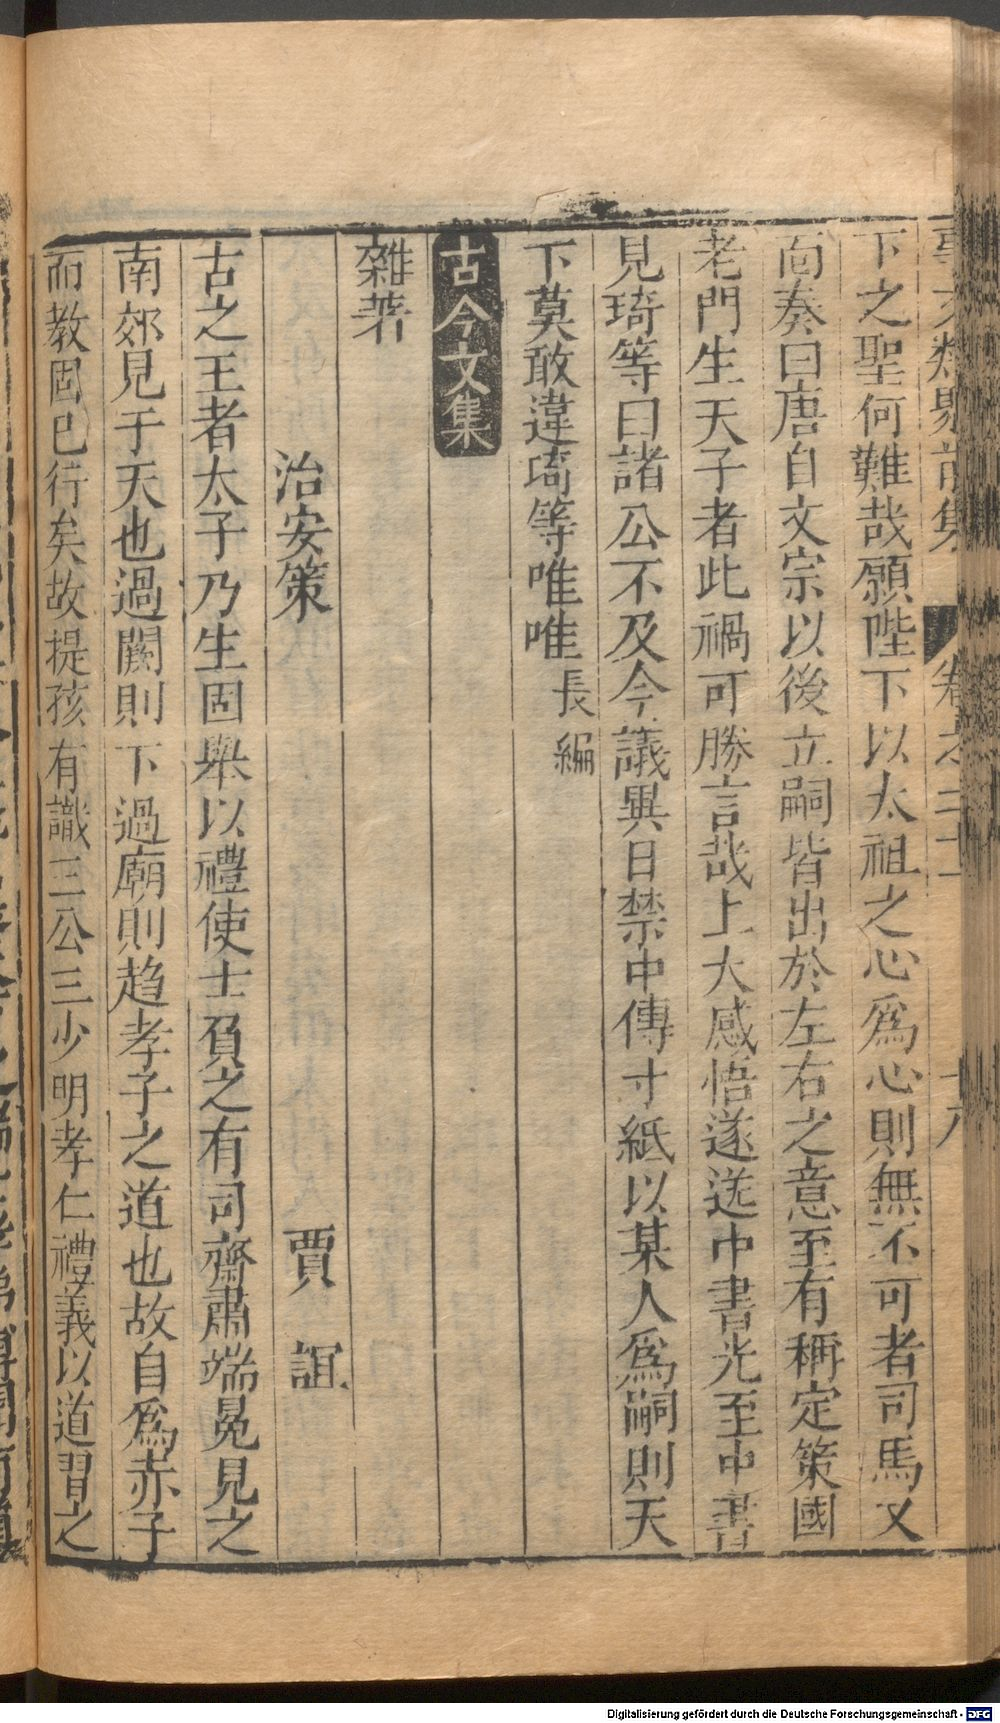 事文類聚前集 卷之二十 十八
下之聖何難哉願陛下以太祖之心為心則無不可者司馬又
面奏曰唐自文宗以後立嗣皆出於左右之意至有稱定策國
老門生天子者此禍可勝言哉上大感悟遂送中書光至中書
見琦等曰諸公不及今議異日禁中傳寸紙以某人為嗣則天
下莫敢違琦等唯唯長編
古今文集
雜著
治安策 賈誼
古之王者太子乃生固舉以禮使士負之有司齋肅端冕見之
南郊見于天也過闕則下過廟則趋孝子之道也故自為赤子
而教固已行矣故提孩有識三公三少明孝仁禮義以道習之
Digitalisierung gefördert durch die Deutsche Forschungsgemeinschaft - DFG